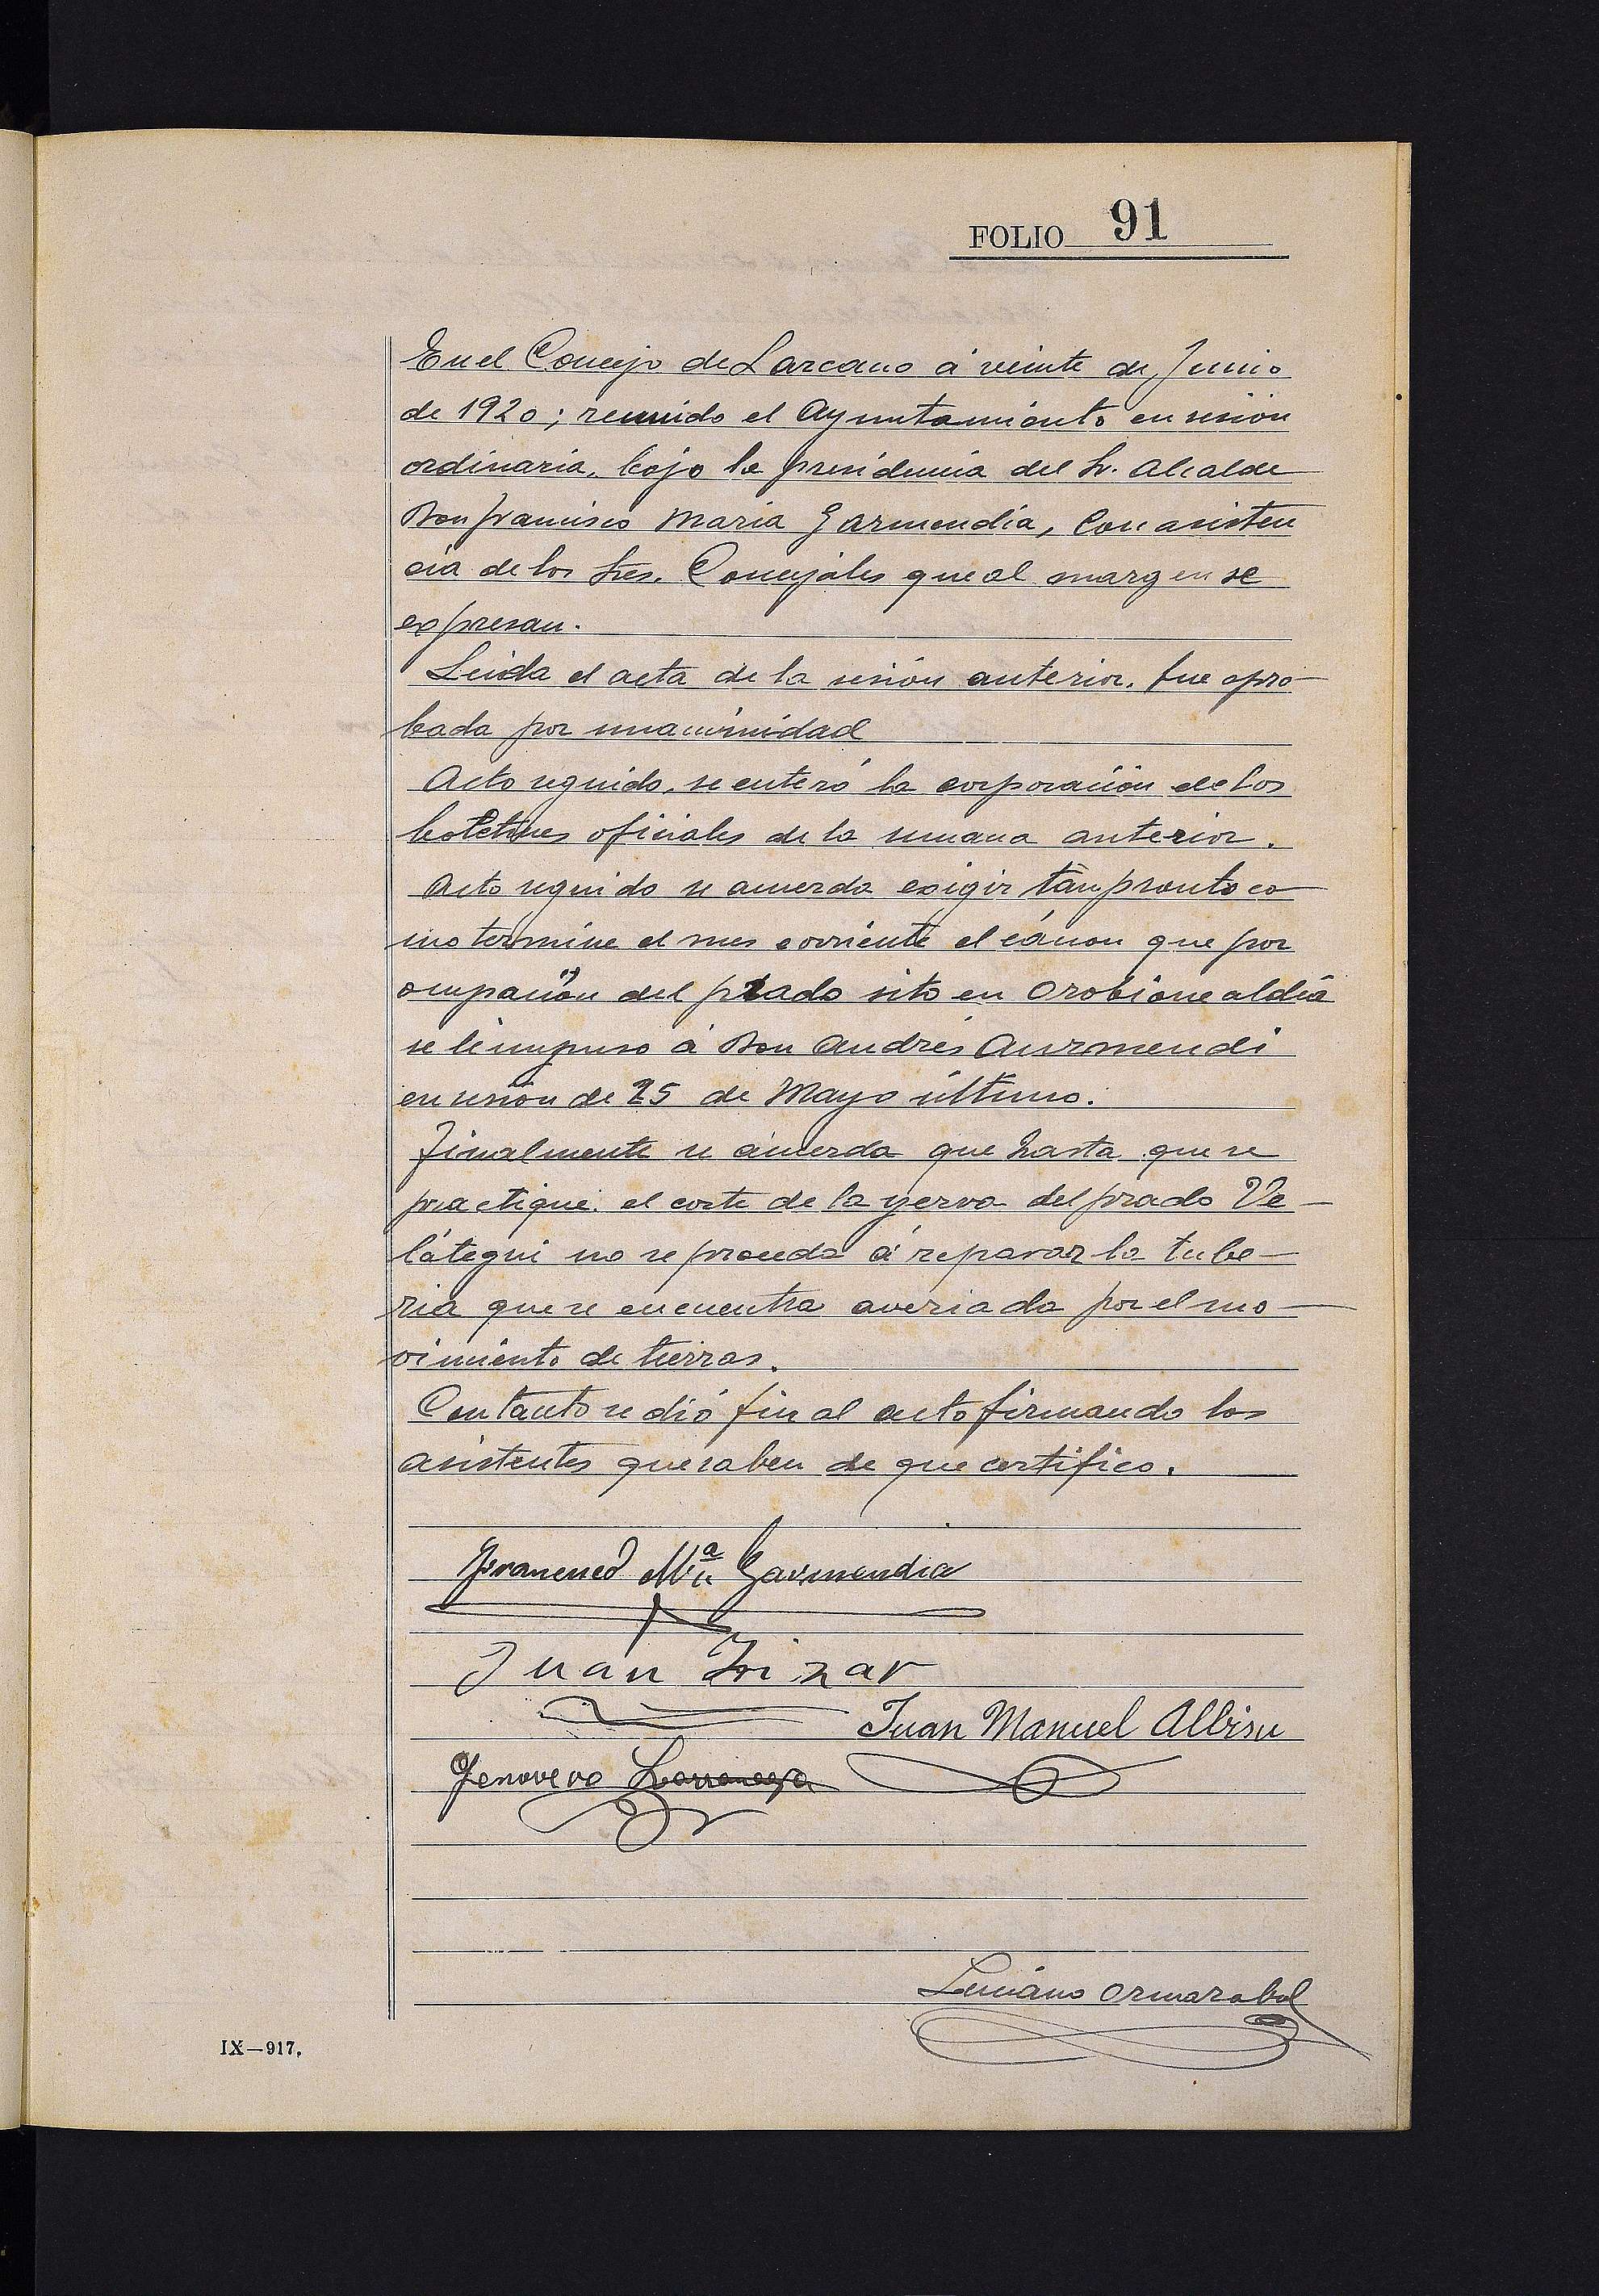 FOLIO 91
En el Concejo de Lazcano á veinte de Junio
de 1920; reunido el Ayuntamiento en sesión
ordinaria, bajo la presidencia del Sr. Alcalde
Don Francisco Maria Garmendia, con asisten
cia de los Sres. Concejales que al margen se
expresan.
Leida el acta de la sesión anterior, fue apro-
bada por unanimidad
Acto seguido, se enteró la corporación de los
boletines oficiales de la semana anterior.
Acto seguido se acuerda exigir tan pronto co-
mo termine el mes corriente el cánon que por
ocupación del prado sito en Orobione aldea
se le impuso á Don Andrés Aurmendi
en sesión de 25 de Mayo último.
Finalmente se acuerda que hasta que se
practique el corte de la yerva del prado Ve-
látegui no se proceda á reparar la tube-
ria que se encuentra averiada por el mo-
vimiento de tierras.
Con tanto se dió fin al acto firmando los
asistentes que saben de que certifico.
Francisco Mª Garmendia
Juan Irizar
Juan Manuel Albisu
Genoveva Larranaga
Luciano Ormazabal
IX—917.